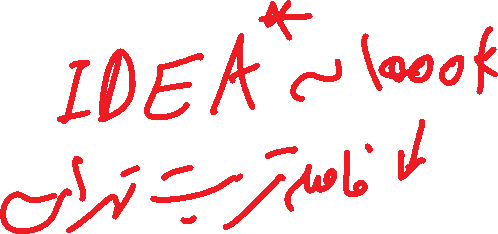 IDEA* ~ 1000k
↓ فاصله تربیت تهران